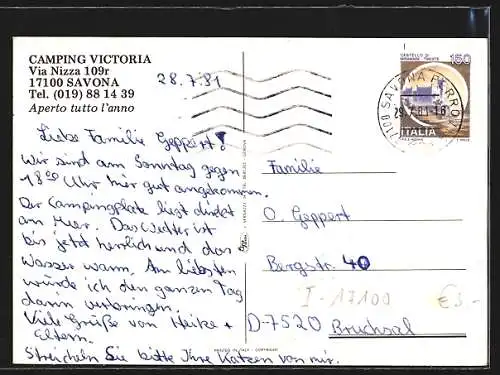 CAMPING VICTORIA
Via Nizza 109r
17100 SAVONA
Tel. (019) 88 14 39
Aperto tutto l'anno
28.7.81
Liebe Familie Geppert!
Wir sind am Sonntag gegen
18⁰⁰ Uhr hier gut angekommen.
Der Campingplatz liegt direkt
am Meer. Das Wetter ist
bis jetzt herrlich und das
Wasser warm. Am liebsten
würde ich den ganzen Tag
darin verbringen.
Viele Grüße von Heike +
Eltern.
Streicheln Sie bitte Ihre Katzen von mir.
150
ITALIA
SAVONA FERROVIA
Familie
O. Geppert
Bergstr. 40
I-17100
€ 3.-
D-7520 Bruchsal
PRINTED IN ITALY - COPYRIGHT